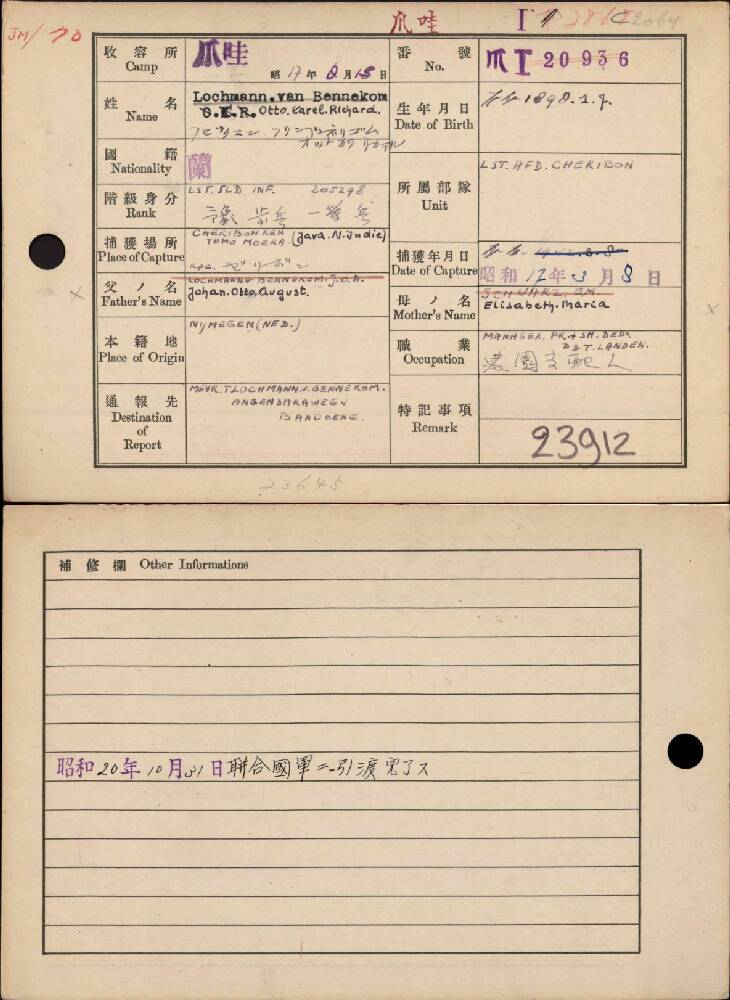 JM/ 70
爪哇
I
收容所 Camp
爪哇
昭17年8月15日
番號 No.
爪I 20936
姓名 Name
Lochmann.van Bennekom
O.K.R. Otto.Carel.Richard.
生年月日 Date of Birth
1898.1.7.
國籍 Nationality
蘭
階級身分 Rank
LST.SLD INF. 205298
一等兵
所屬部隊 Unit
LST.AFD.CHERIBON
捕獲場所 Place of Capture
CHERIBON REN
TOMO MOERA. (Java.N.Indie)
捕獲年月日 Date of Capture
昭和17年3月8日
父ノ名 Father's Name
LOCHMANN V BENNEKOM.J.O.A.
Johan.Otto.August.
母ノ名 Mother's Name
SCHWARZ. EM.
Elisabeth.Maria
本籍地 Place of Origin
NIJMEGEN (NED.)
職業 Occupation
MANAGER. PR
P & T. LANDEN.
農園支配人
通報先 Destination of Report
MEVR. T LOCHMANN.V.BENNEKOM.
BANDOENG.
特記事項 Remark
23912
23645
補修欄 Other Informations
昭和20年10月31日聯合國軍ニ引渡完了ス